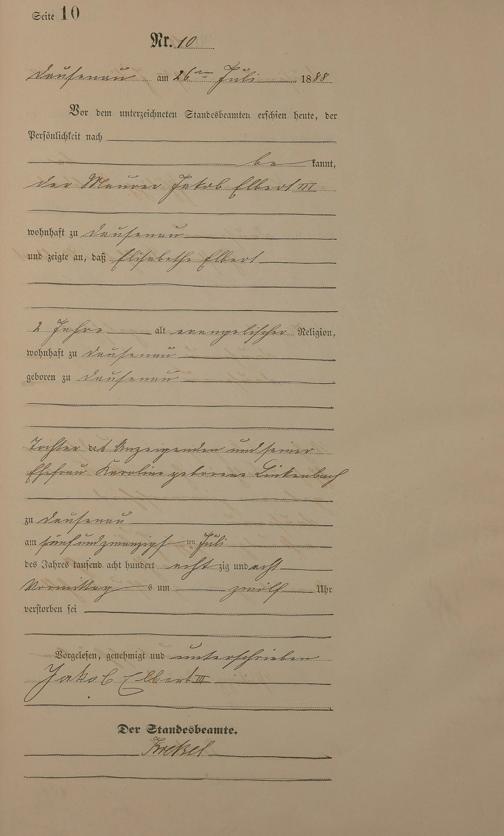 Seite 10
Nr. 10
Dausenau am 26ten Juli 1888
Vor dem unterzeichneten Standesbeamten erschien heute, der
Persönlichkeit nach
be kannt,
der Maurer Jakob Elbert III
wohnhaft zu Dausenau
und zeigte an, daß Elisabethe Elbert
2 Jahre alt evangelischer Religion,
wohnhaft zu Dausenau
geboren zu Dausenau
Tochter des Anzeigenden und seiner
Ehefrau Karoline geborene Linkenbach
zu Dausenau
am fünfundzwanzigst en Juli
des Jahres tausend acht hundert acht zig und acht
Vormittag s um zwölf Uhr
verstorben sei
Vorgelesen, genehmigt und unterschrieben
Jakob Elbert III
Der Standesbeamte.